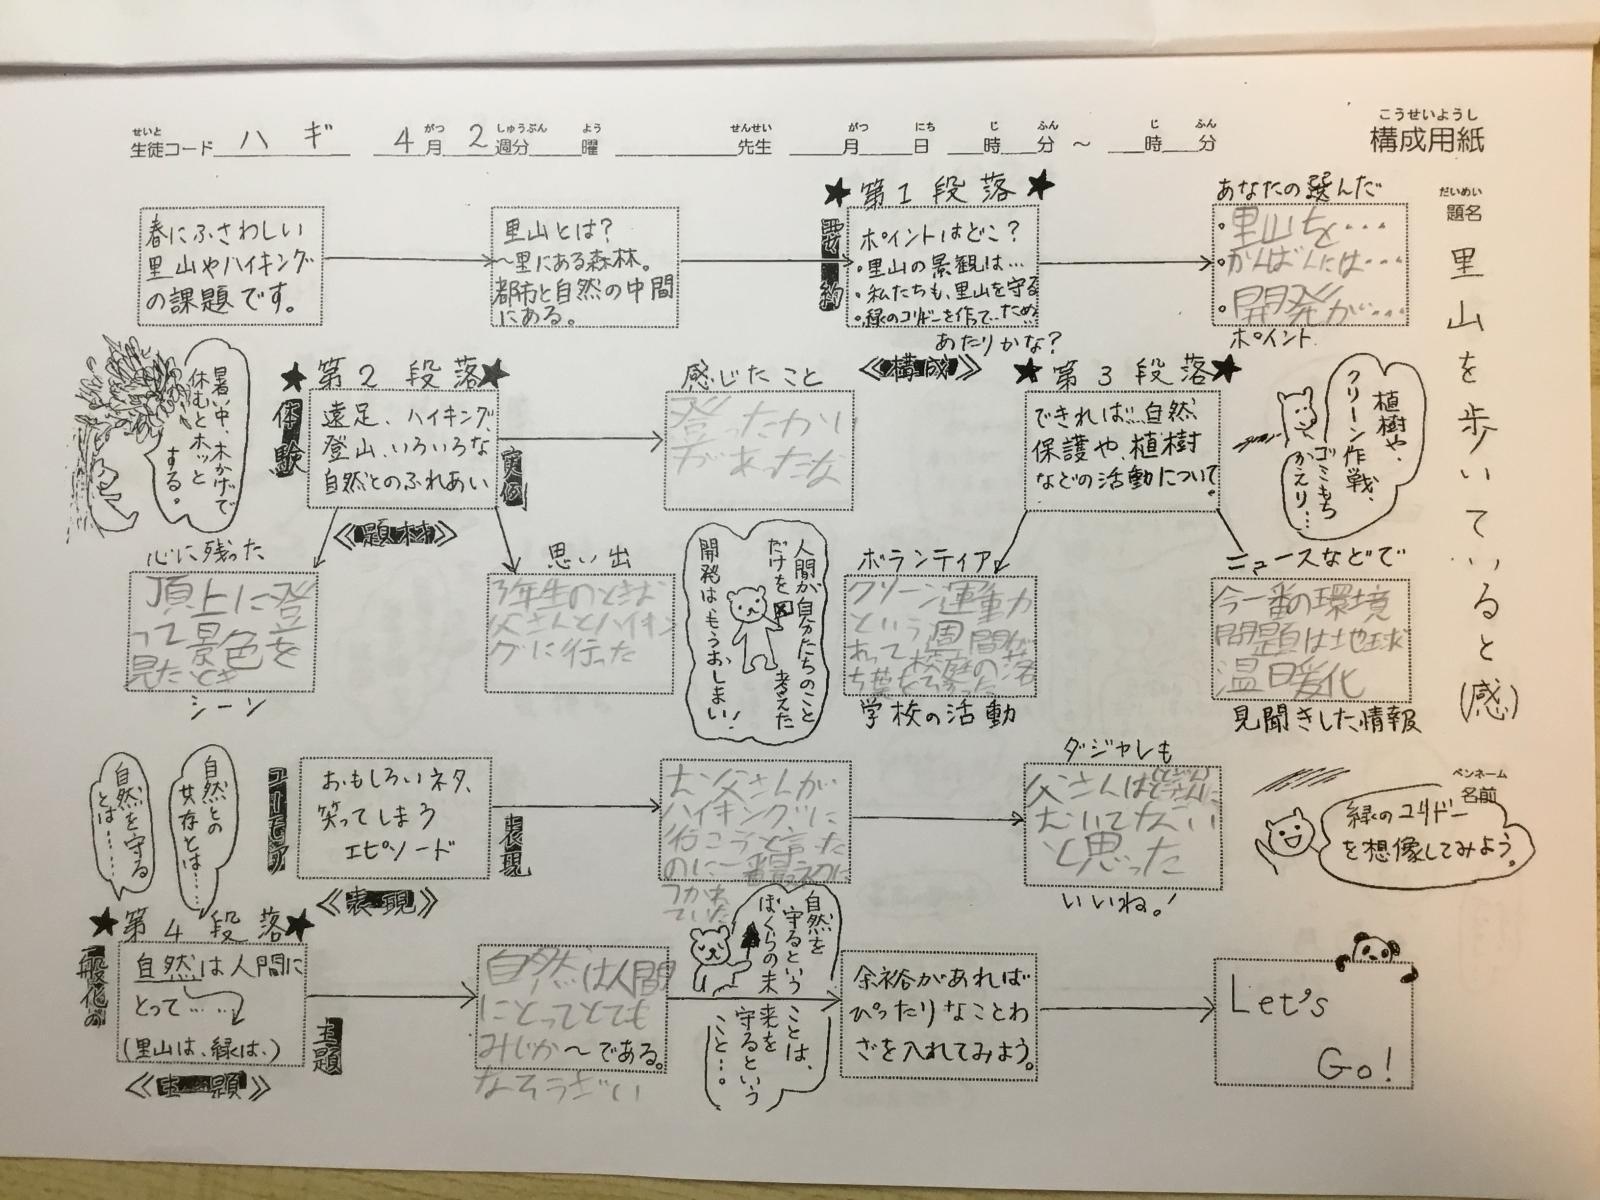 こうせいようし
構成用紙
せいと がつ しゅうぶん よう せんせい がつ にち じ ふん じ ふん
生徒コード ハギ 4月 2週分 曜 先生 月 日 時 分 ～ 時 分
だいめい
題名
里山を歩いていると(感)
ペンネーム
名前
春にふさわしい
里山やハイキング
の課題です。
里山とは?
～里にある森林。
都市と自然の中間
にある。
★第1段落★
要約
ポイントはどこ?
・里山の景観は…
・私たちも、里山を守る
・緑のコリドーを作って…ため
あたりかな?
《構成》
あなたの選んだ
・里山を・・・
・かんばんには・・・
・開発が・・・
ポイント
暑い中、木かげで
休むとホッと
する。
★第2段落★
体験
遠足、ハイキング、
登山、いろいろな
自然とのふれあい
実例
《題材》
感じたこと
登ったかい
があったな
心に残った
頂上に登
って景色を
見たとき
シーン
思い出
3年生のときお
父さんとハイキン
グに行った
人間が自分たちのこと
だけを考えた
開発は、もうおしまい!
★第3段落★
できれば…自然
保護や、植樹
などの活動について。
植樹や、
クリーン作戦、
ゴミもち
かえり…
ボランティア
クリーン運動
という週間が
あって校庭の落
ち葉を
学校の活動
ニュースなどで
今一番の環境
問題は地球
温暖化
見聞きした情報
自然との
共存とは……
自然を守る
とは……
ユーモア
おもしろいネタ、
笑ってしまう
エピソード
表現
《表現》
お父さんが
ハイキングに
行こうと言った
のに一番
つかれ
ていた
ダジャレも
父さんは
と思った
いいね!
緑のコリドー
を想像してみよう。
★第4段落★
一般化の
自然は人間に
とって……
(里山は、緑は、)
主題
《主題》
自然は人間
にとって
みじか～である。
自然を
守るという
ことは、
ぼくらの未
来を
守るという
こと…。
余裕があれば
ぴったりなことわ
ざを入れてみよう。
Let's
Go!